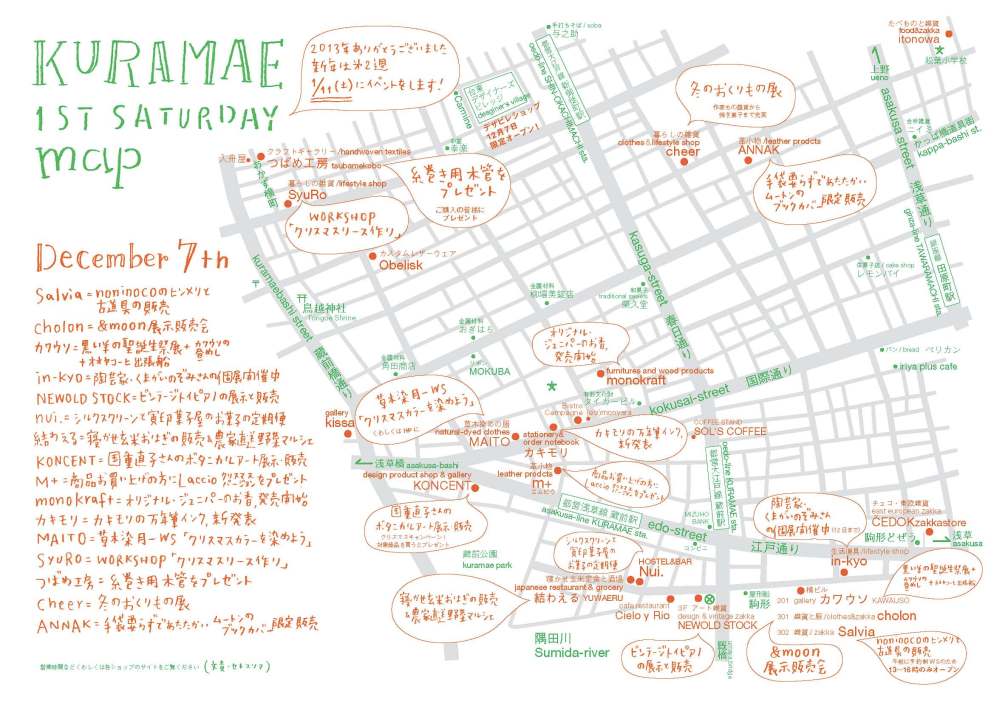 KURAMAE
1ST SATURDAY
map
2013年ありがとうございました
新年は第2週
1/11(土)にイベントをします!
December 7th
Salvia=noninocoのヒンメリと
古道具の販売
cholon=&moon展示販売会
カワウソ=黒い羊の聖誕生祭展+カワウソの
+オオヤコーヒ出張船
in-kyo=陶芸家・くまがいのぞみさんの個展開催中
NEWOLD STOCK=ビンテージトイピアノの展示と販売
nui.=シルクスクリーンと寳印菓子屋のお菓子の定期便
結わえる=寝かせ玄米おはぎの販売&農家直送野菜マルシェ
KONCENT=国重直子さんのボタニカルアート展示・販売
M+=商品お買い上げの方にLaccioクリスマスをプレゼント
monokraft=オリジナル・ジュニパーのお香、発売開始
カキモリ=カキモリの万年筆インク、新発表
MAITO=草木染月-WS「クリスマスカラーを染めよう」
SyuRo=WORKSHOP「クリスマスリース作り」
つばめ工房=糸巻き用木管をプレゼント
Cheer=冬のおくりもの展
ANNAK=手袋要らずであたたかいムートンのブックカバー限定販売
営業時間などくわしくは各ショップのサイトをご覧ください
手打ちそば / soba
与之助
oedo-line SHIN-OKACHIMACHI sta.
台東
デザイナーズ
ビレッジ
designer's village
デザビレショップ
12月7日
限定オープン!
Carmine
幸楽
入舟屋
おかず横町
クラフトギャラリー/handwoven textiles
つばめ工房 tsubamekobo
糸巻き用木管を
プレゼント
ご購入の皆様に
プレゼント
暮らしの雑貨/lifestyle shop
SyuRo
WORKSHOP
「クリスマスリース作り」
カスタムレザーウェア
Obelisk
kuramaebashi street 蔵前橋通り
鳥越神社
Torigoe Shrine
冬のおくりもの展
作家もの雑貨から
焼き菓子まで充実
暮らしの雑貨
clothes&lifestyle shop
cheer
革小物 /leather prodcts
ANNAK
手袋要らずであたたかい
ムートンの
ブックカバー限定販売
たべものと雑貨
food&zakka
itonowa
松葉小学校
上野
ueno
asakusa street 浅草通り
ニイミ
かっぱ橋道具街
kappa-bashi st.
ginza-line TAWARAMACHI sta.
銀座線 田原町駅
洋菓子店 / cake shop
レモンパイ
kasuga-street 春日通り
金属材料
和菓子
traditional sweets
栄久堂
金属材料
おぎはら
金属材料
角田商店
リボン
MOKUBA
オリジナル・
ジュニパーのお香、
発売開始
furnitures and wood products
monokraft
タイガービル
パン / bread ペリカン
iriya plus cafe
kokusai-street 国際通り
gallery
kissa
草木染月-WS
「クリスマスカラーを染めよう」
くわしくはHPに
草木染めの服
natural-dyed clothes
MAITO
Bistro
stationery&
order notebook
カキモリ
カキモリの万年筆インク、
新発表
COFFEE STAND
SOL'S COFFEE
浅草橋 asakusa-bashi
design product shop & gallery
KONCENT
革小物
leather prodcts
m+
エムピウ
商品お買い上げの方に
都営浅草線 蔵前駅
asakusa-line KURAMAE sta.
都営大江戸線 蔵前駅
oedo-line KURAMAE sta.
国重直子さんの
ボタニカルアート展示・販売
クリスマスキャンペーン!
対象商品を買うとプレゼント
MIZUHO
BANK
コンビニ
edo-street 江戸通り
蔵前公園
kuramae park
シルクスクリーンと
寳印菓子屋の
お菓子の定期便
HOSTEL&BAR
Nui.
寝かせ玄米定食と酒場
japanese restaurant & grocery
結わえる YUWAERU
寝かせ玄米おはぎの販売
&農家直送野菜マルシェ
cafe restaurant
Cielo y Rio
3F アート雑貨
design & vintage zakka
NEWOLD STOCK
ビンテージトイピアノ
の展示と販売
隅田川
Sumida-river
厩橋
umaya bridge
屋形船
駒形
陶芸家、
くまがいのぞみさん
の個展開催中
生活道具/lifestyle shop
in-kyo
チェコ・東欧雑貨
east european zakka
CEDOKzakkastore
駒形どぜう
浅草
asakusa
黒い羊の聖誕生祭展+
橋ビル
201 gallery カワウソ KAWAUSO
301 雑貨と服 /clothes&zakka cholon
302 雑貨 / zakka Salvia
&moon
展示販売会
noninocoのヒンメリと
古道具の販売
13-16時のみオープン